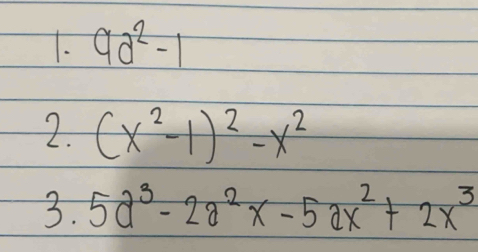 1. 9a² - 1
2. (x² - 1)² - x²
3. 5a³ - 2a²x - 5ax² + 2x³